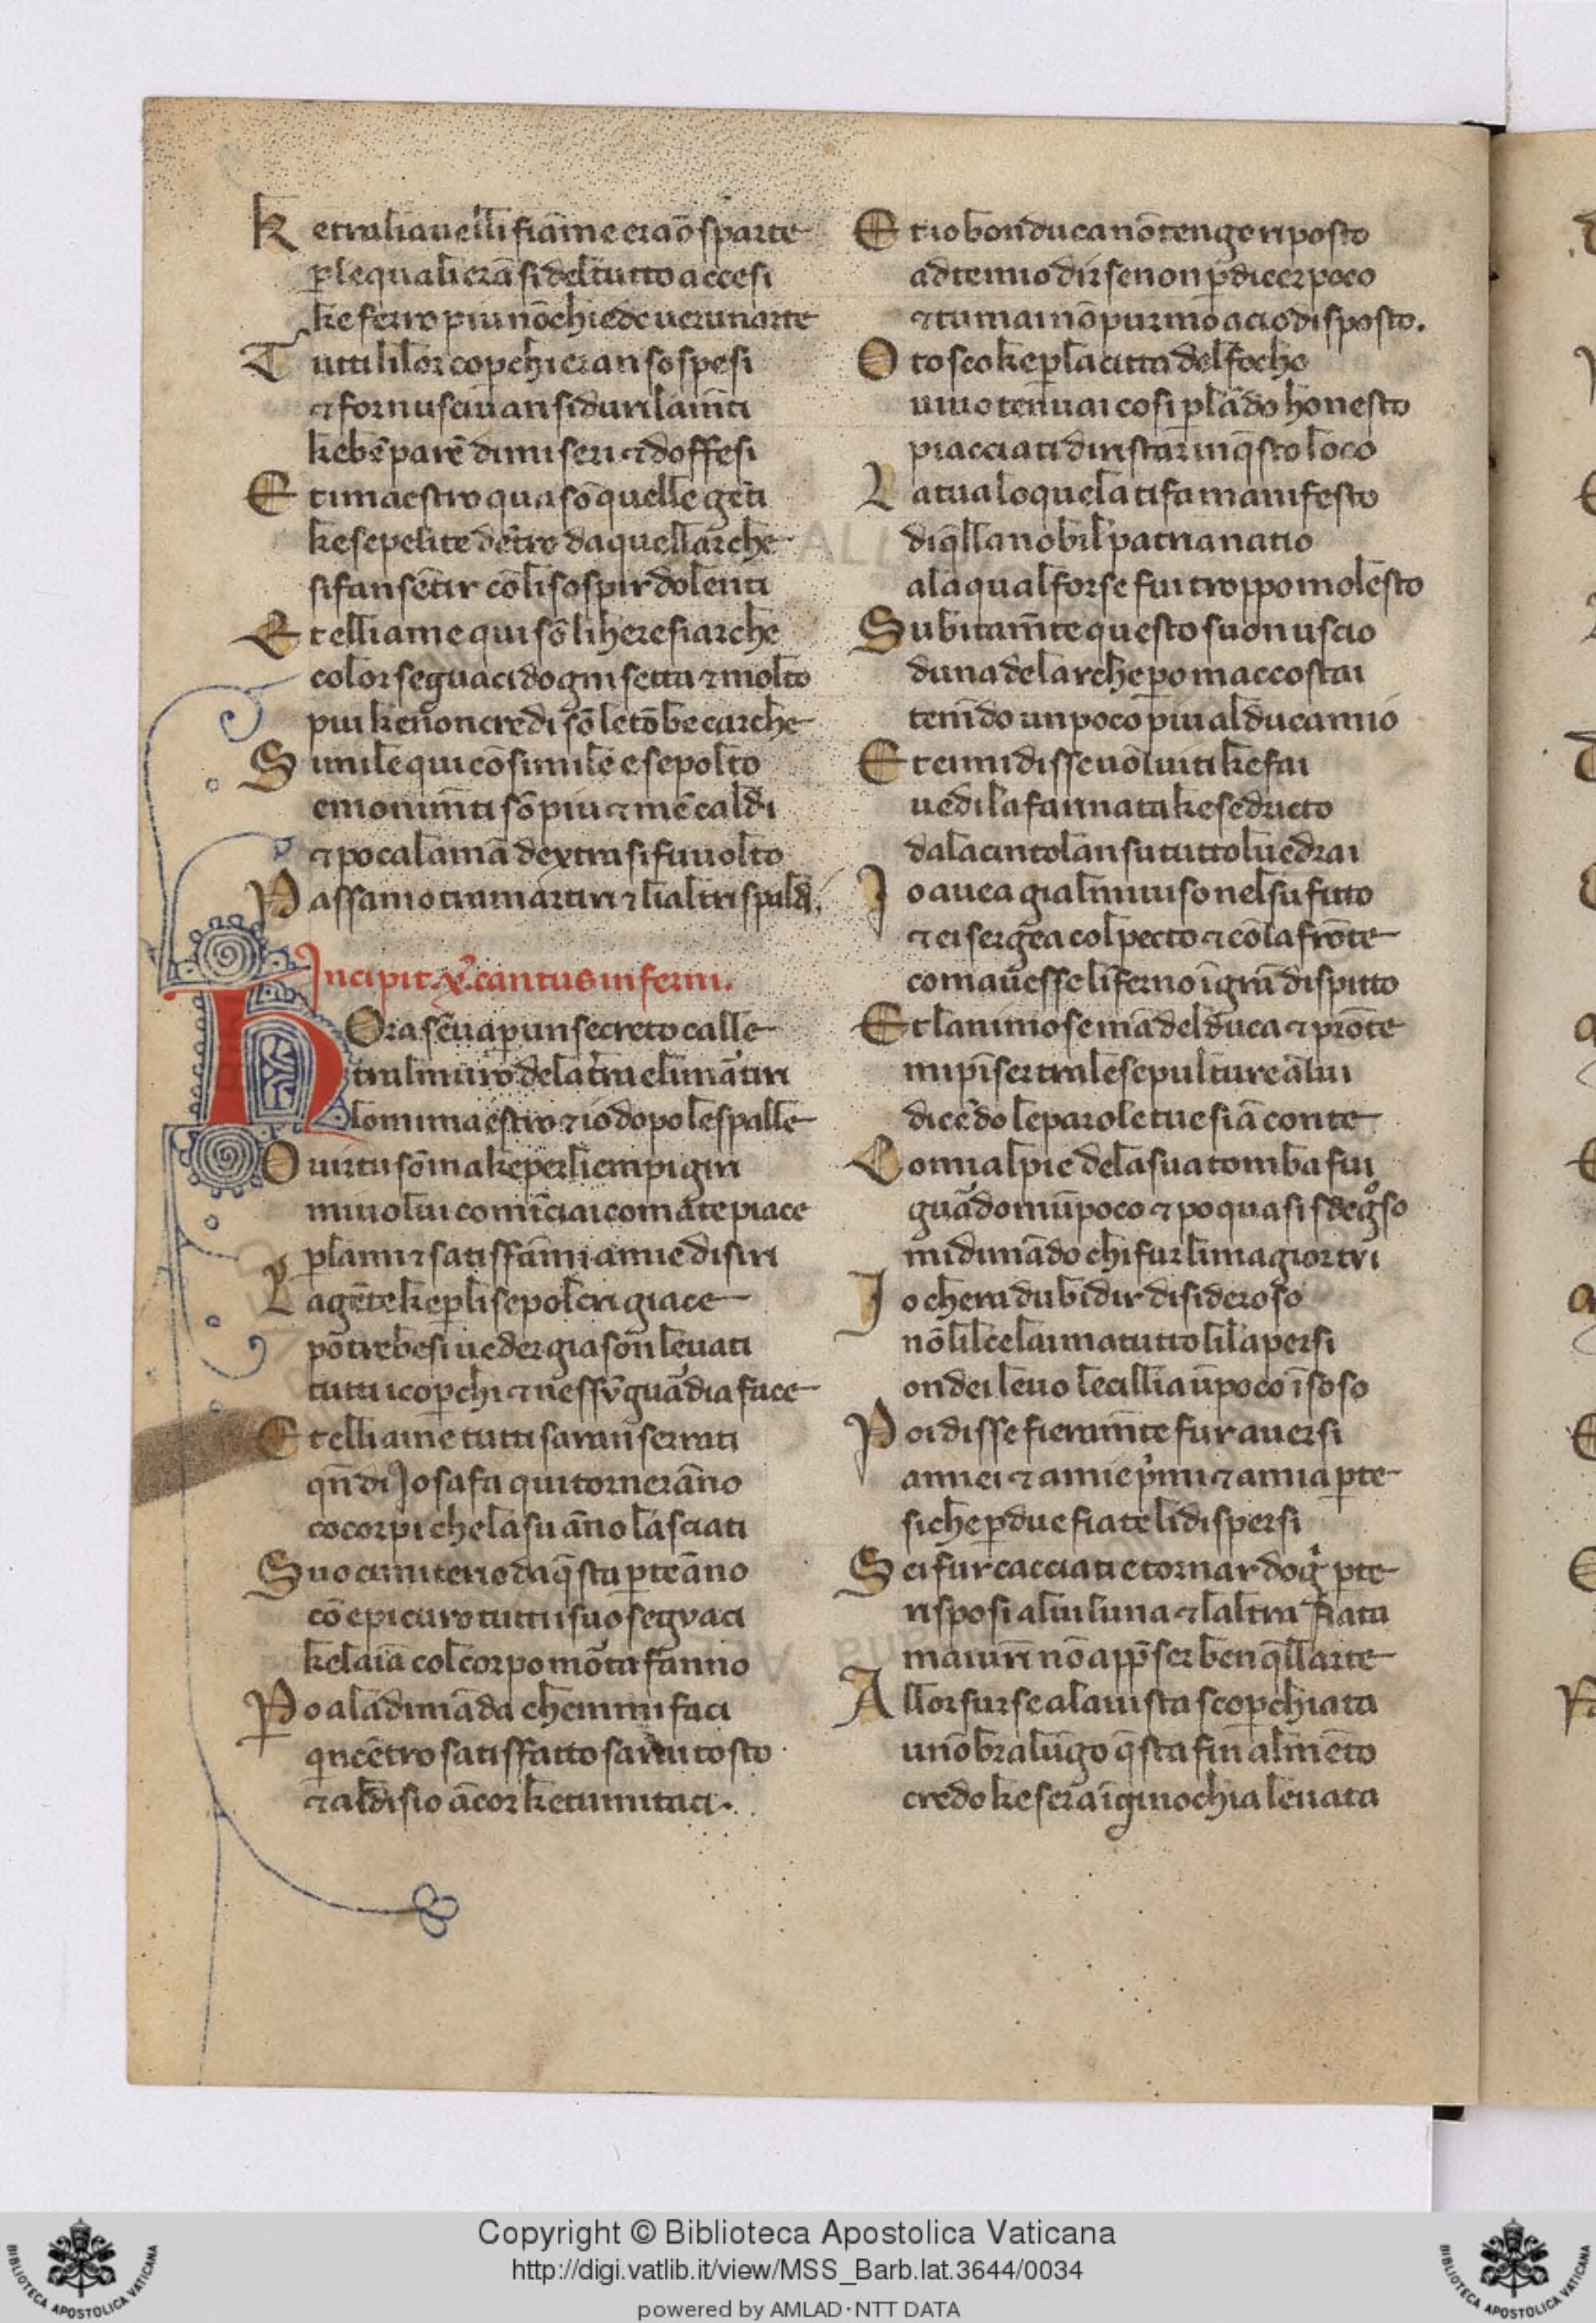 K etraliauelli fiāme eraō sparte
ꝑlequalierā sideltutto accesi
ke ferro piu nōchiede uerunarte
T utti lilor copchi eran sospesi
⁊ for nuscivan siduri lam̄ti
kebē parē dimiseri ⁊ doffesi
E tı maestro quaı sō quelle gēti
kesepelite dētro daquellarche
sifansētır cō li sospir dolenti
E telli ame qui sō li heresiarche
color seguaci dogni setta ⁊ molto
piu kenoncredi sō letōbe carche
S imile qui cō simile e sepolto
emonim̄ti sō piu ⁊ mē caldi
⁊ poca lamā dextra sifu uolto
P assamo tra martiri ⁊ lialtri spald.
Incipit .x. cantus inferni.
h Ora sē ua ꝑ un secreto calle
tralmuro dela tr̄a eli mātiri
lomimaestro ⁊ io dopo le spalle
O uirtu sōma ke per li empi giri
miuolui comīciai comate piace
ꝑlami ⁊ satisfāmi amie disiri
L a gēte ke ꝑ li sepolcri giace
pōtrebesi ueder gia son leuati
tutti icoꝑchi ⁊ nessū guādia face
E telli ame tutti saran serrati
qn̄ di Josafa qui tornerāno
cocorpi che lasu āno lasciati
S uo cimiterio daq̄sta ꝑte āno
cō epicuro tutti suo seguaci
kelaīa col corpo mōta fanno
P o ala dimāda chemmi faci
qncētro satisfatto sara tosto
⁊ al disio ācor ke tu mi taci.
E tio bon duca nō tengo riposto
ad te mio dir se non ꝑ dicer poco
⁊ tu mai nō pur mo acio disposto.
O tosco ke ꝑ la citta del focho
uiuo ten uai cosi ꝑlādo honesto
piacciati diristar in q̄sto loco
L a tua loquela ti fa manifesto
diq̄lla nobil patria natio
ala qual forse fui troppo molesto
S ubitam̄te questo suon uscio
duna del arche po maccostai
tenīdo un poco piu al duca mio
E t ei mi disse uōluiti ke fai
uedi la farinata ke se dricto
dala cintola n su tutto lu edrai
I o auea gial mi uiso nel su fitto
⁊ ei sergea col pecto ⁊ cō la frōte
comauesse lıferno ī grā dispitto
E t lanimose mā del duca ⁊ prōte
mi pīser tra le sepulture ā lui
dicēdo le parole tue siā conte
C omi al pie dela sua tomba fui
guādomi ū poco ⁊ po quasi sdeg̊so
mi dimādo chi fur li magior tui
I o chera dubidir disideroso
nō lil celai ma tutto lil apersi
ondei leuo le cillia ū poco ī soso
P oi disse fieram̄te fur auersi
ammei ⁊ amie pimi ⁊ amia ꝑte
siche ꝑ due fiate li dispersi
S ei fur cacciati e tornar dog̍ ꝑte
risposi alui luna ⁊ laltra fiata
mai uri nō app̄ser ben q̄llarte
A llor surse ala uista scoꝑchiata
un ōbra lūgo q̄sta fin al mēto
credo ke sera ī ginochia leuata
ALL
Copyright © Biblioteca Apostolica Vaticana
http://digi.vatlib.it/view/MSS_Barb.lat.3644/0034
powered by AMLAD·NTT DATA
BIBLIOTECA APOSTOLICA VATICANA
BIBLIOTECA APOSTOLICA VATICANA